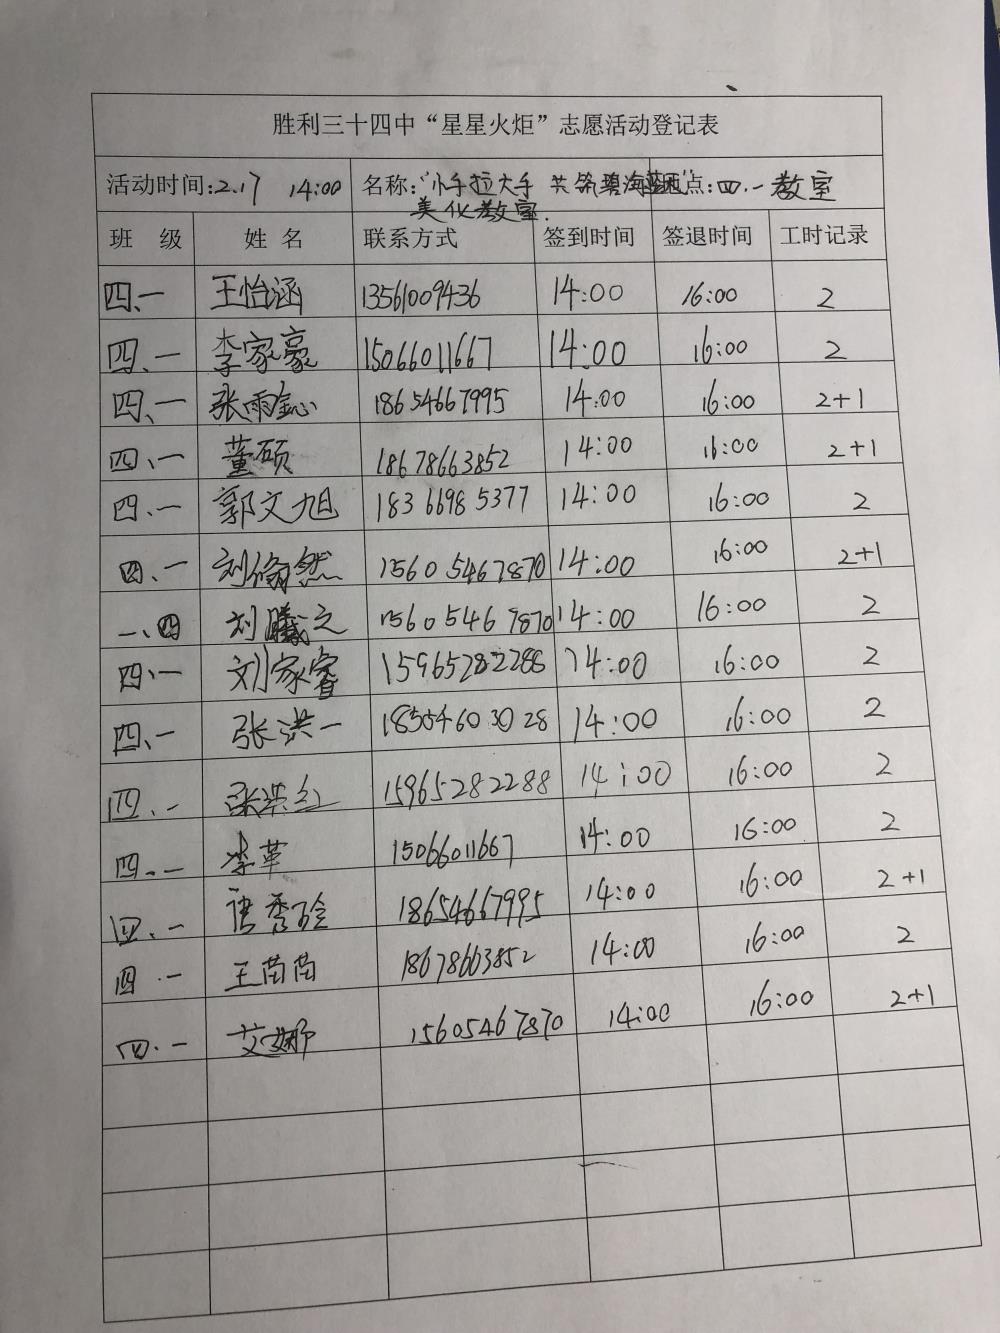 胜利三十四中“星星火炬”志愿活动登记表
活动时间:2.17 14:00 名称:“小手拉大手 共筑碧海蓝天”点:四.一教室
美化教室.
班 级 姓 名 联系方式 签到时间 签退时间 工时记录
四.一 王怡涵 13561009436 14:00 16:00 2
四.一 李家豪 15066011667 14:00 16:00 2
四、一 张雨鑫 18654667995 14:00 16:00 2+1
四、一 董硕 18678663852 14:00 16:00 2+1
四.一 郭文旭 18366985377 14:00 16:00 2
四.一 刘脩然 15605467870 14:00 16:00 2+1
一、四 刘曦之 15605467870 14:00 16:00 2
四.一 刘家睿 15965282288 14:00 16:00 2
四、一 张洪一 185054603028 14:00 16:00 2
四.一 张洪红 15965282288 14:00 16:00 2
四.一 李革 15066011667 14:00 16:00 2
四.一 唐秀玲 18654667995 14:00 16:00 2+1
四.一 王苗苗 18678663852 14:00 16:00 2
四.一 艾娜 15605467870 14:00 16:00 2+1